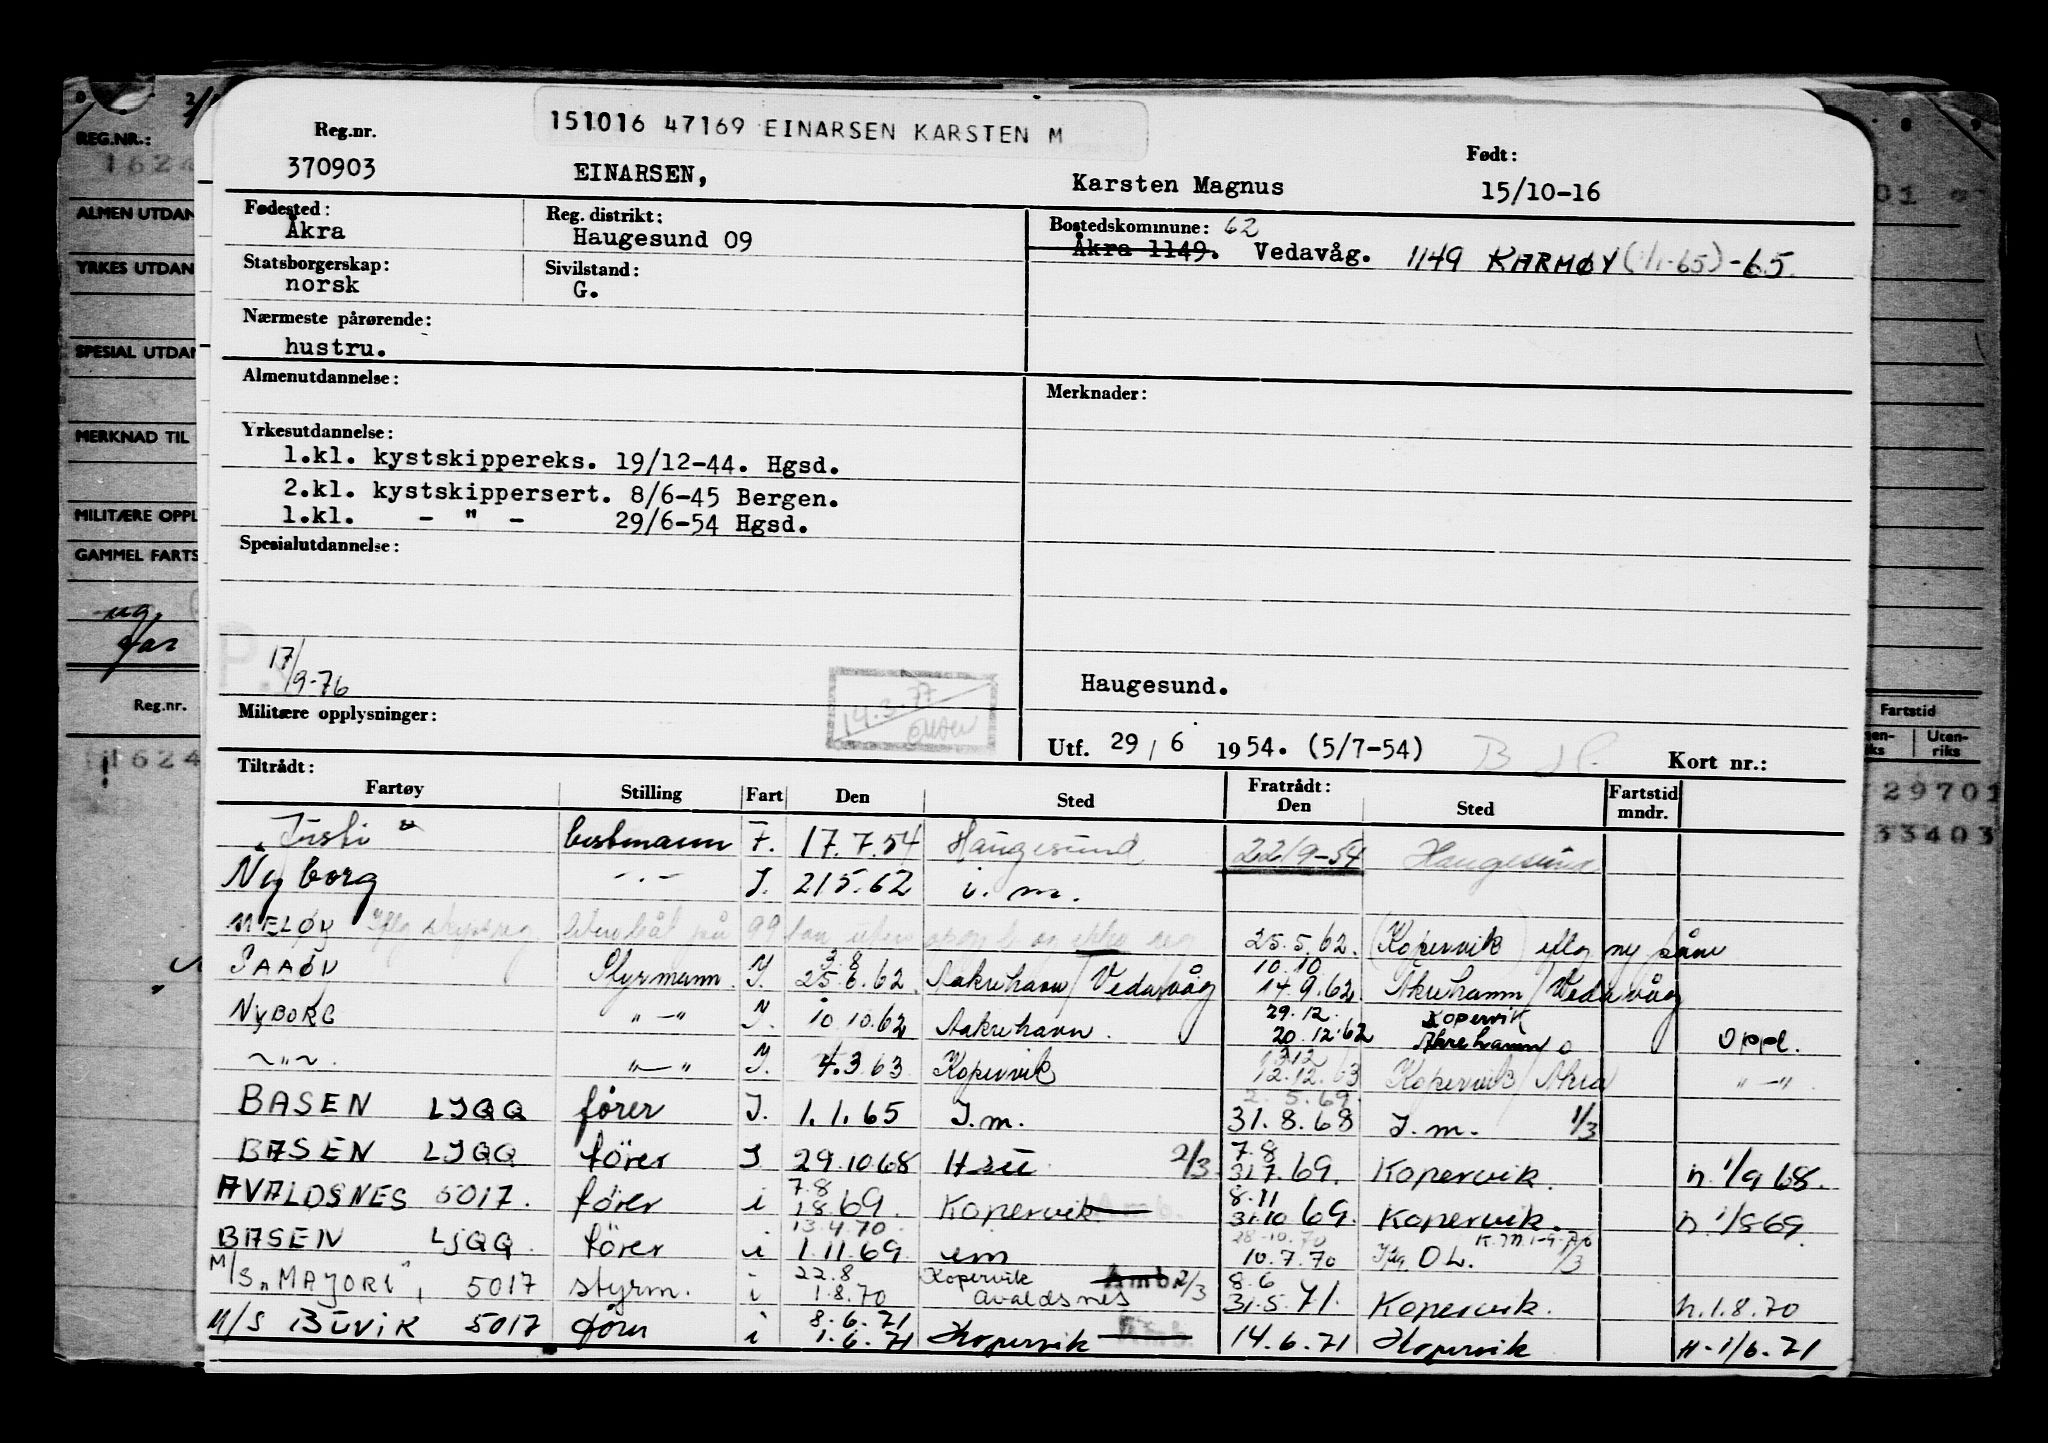 151016 47169 EINARSEN KARSTEN M
Reg.nr.
370903
EINARSEN,
Karsten Magnus
Født:
15/10-16
Fødested:
Åkra
Reg. distrikt:
Haugesund 09
Bostedskommune: 62
Åkra 1149. Vedavåg. 1149 KARMØY (1/1-65) -65.
Statsborgerskap:
norsk
Sivilstand:
G.
Nærmeste pårørende:
hustru.
Almenutdannelse:
Merknader:
Yrkesutdannelse:
1.kl. kystskippereks. 19/12-44. Hgsd.
2.kl. kystskippersert. 8/6-45 Bergen.
1.kl. - " - 29/6-54 Hgsd.
Spesialutdannelse:
17/9-76
14.3.77
Haugesund.
Militære opplysninger:
Utf. 29 / 6 1954. (5/7-54)
Kort nr.:
Tiltrådt:
Fartøy Stilling Fart Den Sted Fratrådt: Den Sted Fartstid mndr.
bestmann F. 17.7.54 Haugesund 22/9-54 Haugesund
Nyborg -.- J. 21.5.62 i.m.
MELØY 25.5.62. (Kopervik)
Styrmann J. 3.8 25.6.62. Aakrehavn/Vedavåg 10.10 14.9.62. Åkrehamn/Vedavåg
NYBORG "-" J. 10.10.62 Aakrehavn. 29.12. 20.12.62 Kopervik Åkrehamn Oppl.
~"~. "-" J. 4.3.63 Kopervik 12.12.63 Kopervik/Åkra "-".
BASEN LJQQ fører J. 1.1.65 J.m. 2.5.69. 31.8.68 J.m. 1/3
BASEN LJQQ fører J 29.10.68 2/3 7.8 31.7.69. Kopervik. n. 1/9 68.
AVALDSNES 5017. fører i 7.8 1.8.69. Kopervik 8.11 31.10 69. Kopervik. n. 1/8 69.
BASEN LJQQ. fører i 13.4.70 1.11.69. um 28.10.70 10.7.70 1/3
M/S "MAJORI", 5017 styrm. i 22.8 1.8.70 Kopervik Avaldsnes Amb. 2/3 8.6 31.5.71. Kopervik. n. 1.8.70
M/S BUVIK 5017 fører i 8.6.71 1.6.71 Kopervik 14.6.71 Kopervik n. 1/6.71
REG.NR.:
1624
ALMEN UTDAN
YRKES UTDAN
SPESIAL UTDAN
MERKNAD TIL
MILITÆRE OPPL
GAMMEL FARTS
Reg.nr.
1624
01
Fartstid
Uten-
riks
29701
33403